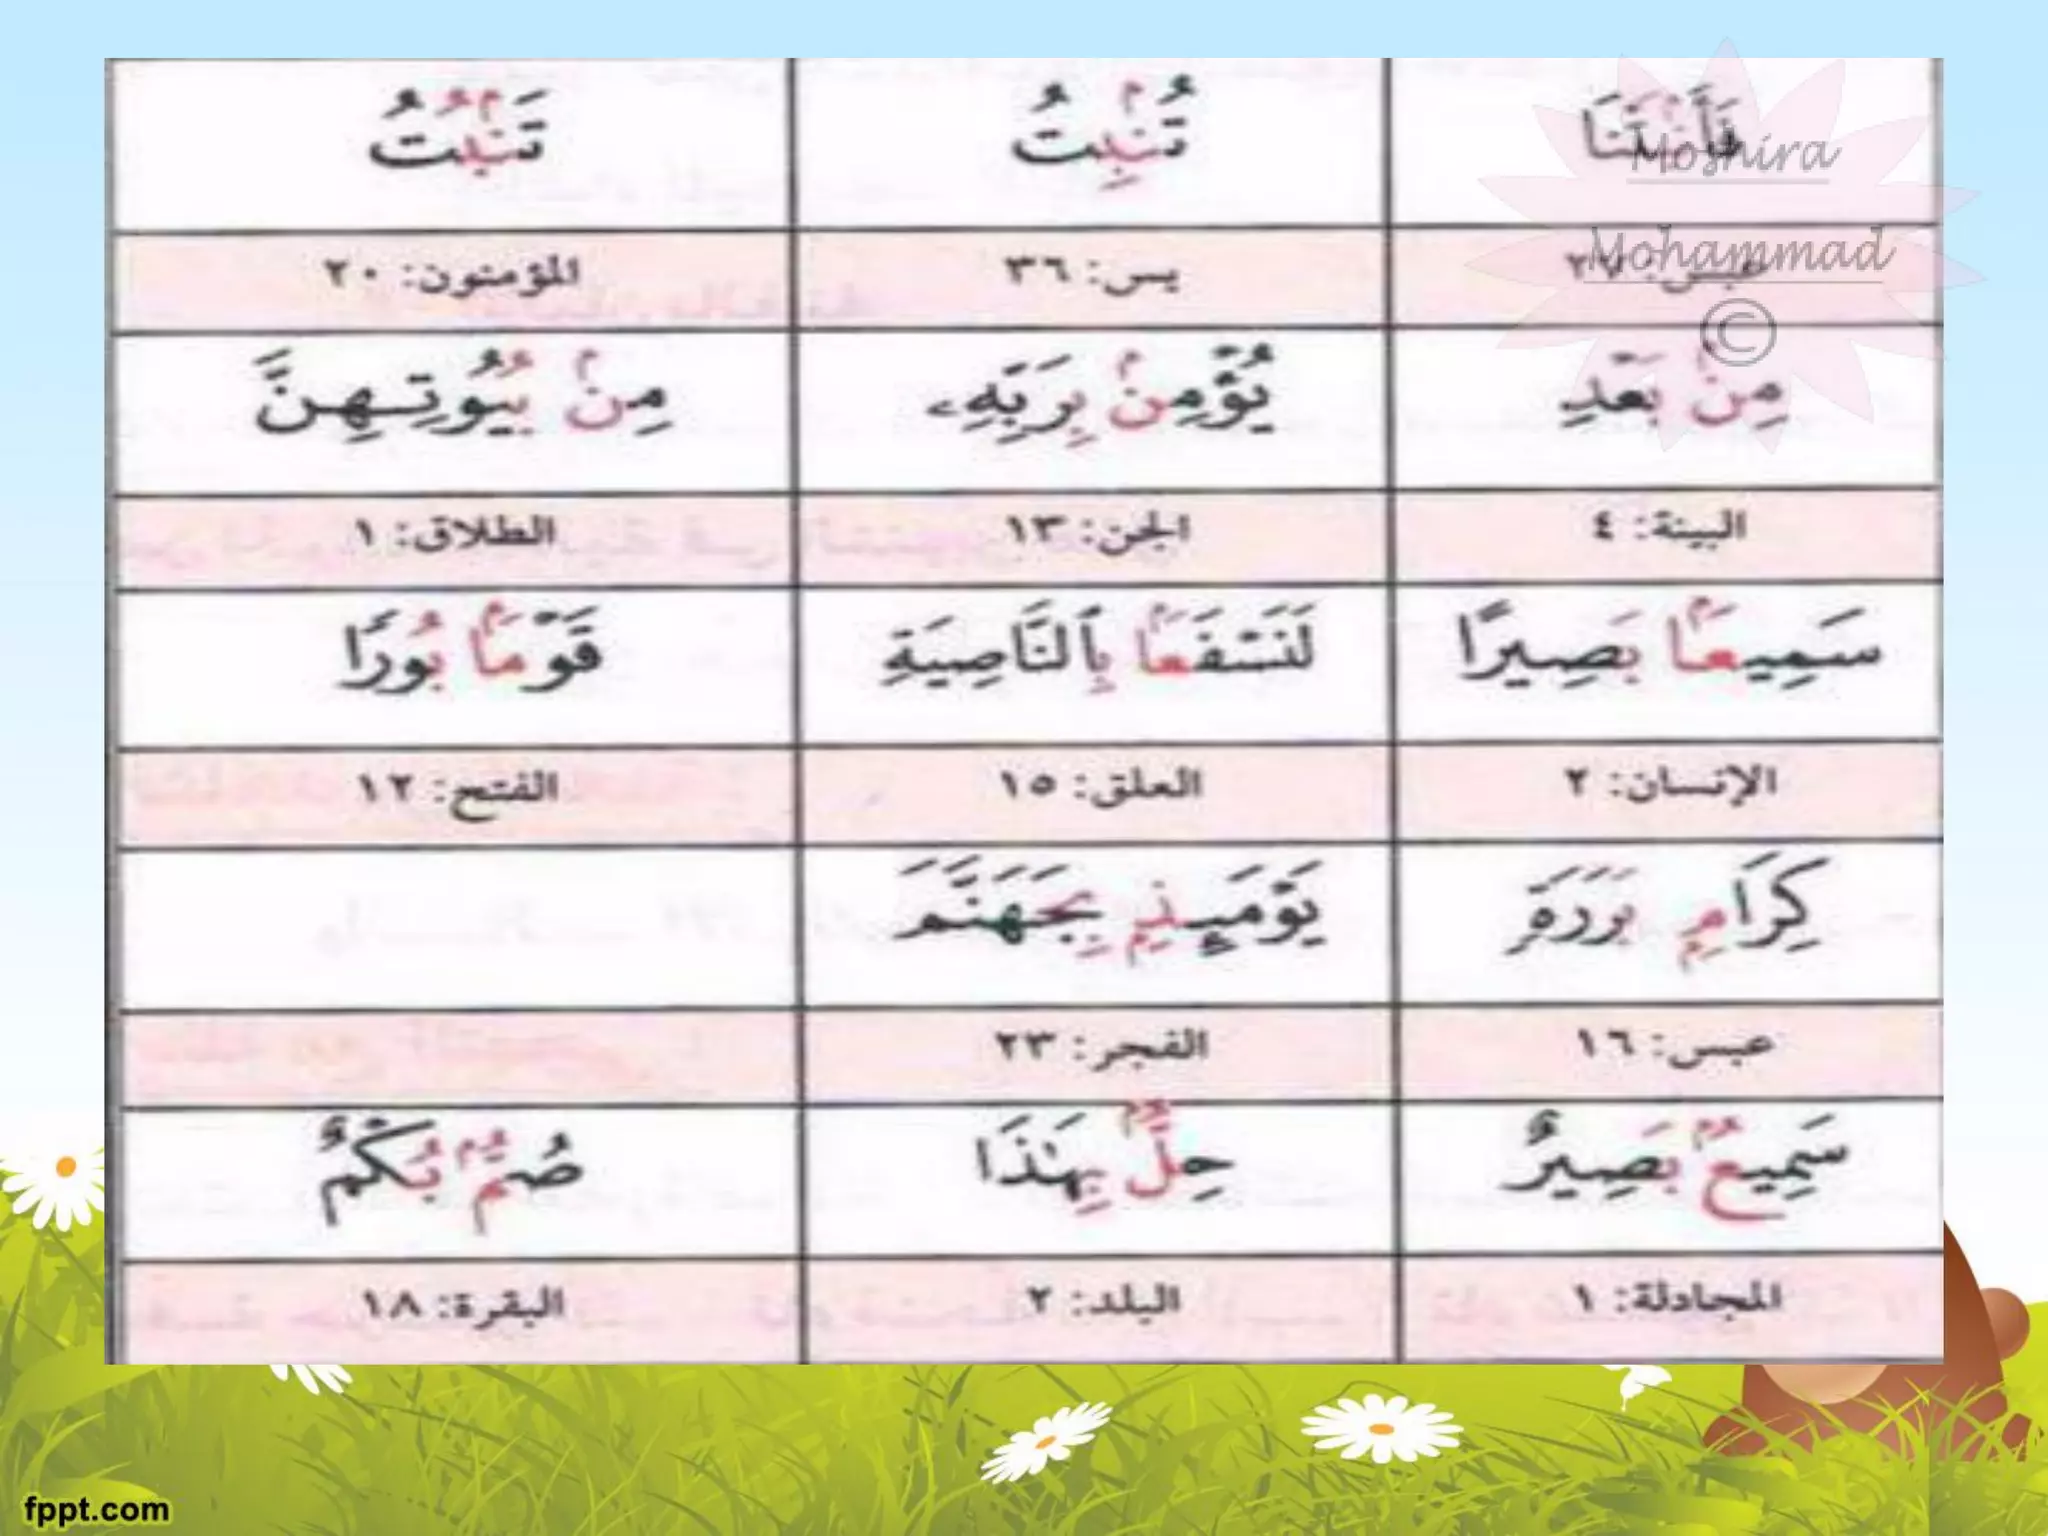 فَأَنۢبَتۡنَا تُنۢبِتُ تَنۢبُتُ
عبس: ٢٧ يس: ٣٦ المؤمنون: ٢٠
مِنۢ بَعۡدِ يُؤۡمِنۢ بِرَبِّهِۦ مِنۢ بُيُوتِهِنَّ
البينة: ٤ الجن: ١٣ الطلاق: ١
سَمِيعَۢا بَصِيرًا لَنَسۡفَعَۢا بِٱلنَّاصِيَةِ قَوۡمَۢا بُورًا
الإنسان: ٢ العلق: ١٥ الفتح: ١٢
كِرَامِۭ بَرَرَةٖ يَوۡمَئِذِۭ بِجَهَنَّمَ
عبس: ١٦ الفجر: ٢٣
سَمِيعُۢ بَصِيرٌ حِلُّۢ بِهَٰذَا صُمُّۢ بُكۡمٌ
المجادلة: ١ البلد: ٢ البقرة: ١٨
Moshira
Mohammad
©
fppt.com